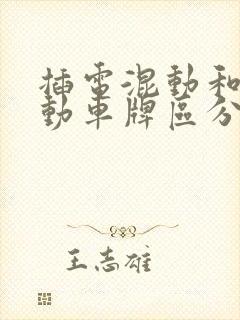 插電混動和
動車牌區分
王志雄